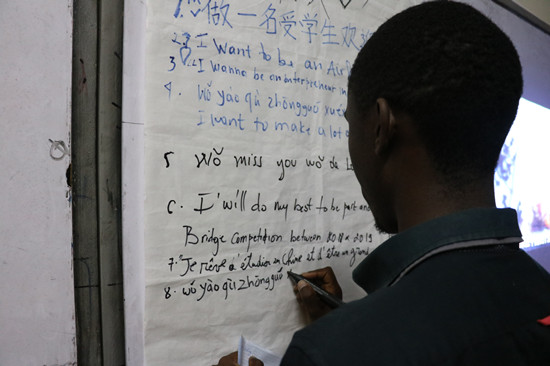 做一名受学生欢
2. I want to be an Air
3. I wanna be an interpreneur in
4. Wǒ yào qù zhōngguó xué
I want to make a lot
5 Wǒ miss you wǒ de
6. I'will do my best to be part
Bridge Competition between 2019
7. Je rêve d'étudier en Chine et d'être un grand
8. wǒ yào qù zhōngguó